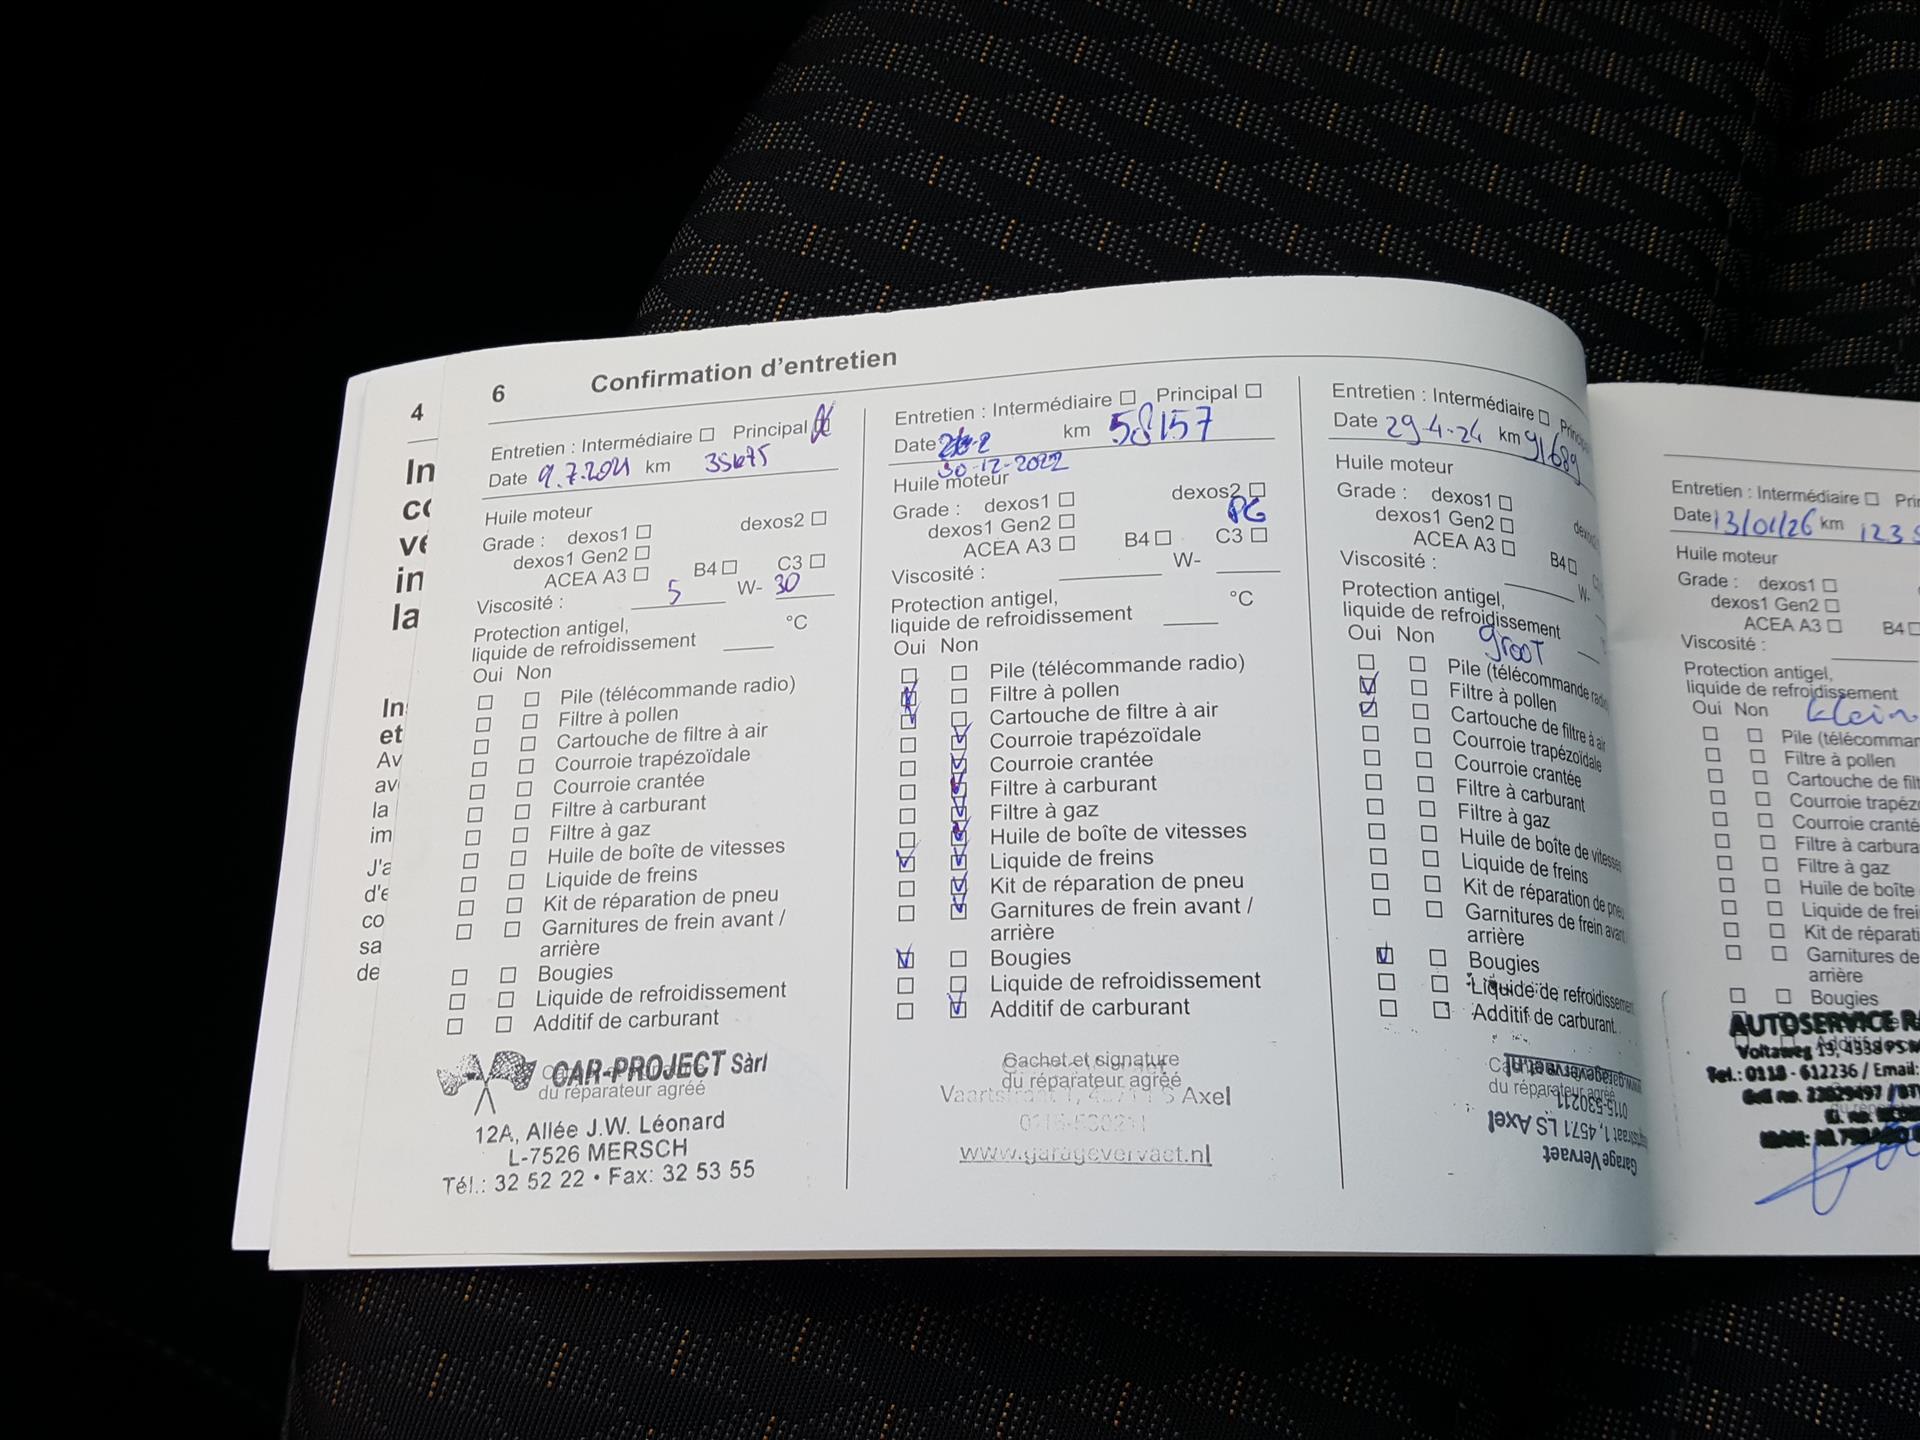 4
In
co
vé
in
la
In
et
Av
ave
la
im
J'a
d'e
co
sa
de
6 Confirmation d'entretien
Entretien : Intermédiaire ☐ Principal
Date 9.7.2021 km
Huile moteur
Grade : dexos1 ☐ dexos2 ☐
dexos1 Gen2 ☐
ACEA A3 ☐ B4 ☐ C3 ☐
Viscosité : 5 W- 30
Protection antigel,
liquide de refroidissement ____ °C
Oui Non
Pile (télécommande radio)
Filtre à pollen
Cartouche de filtre à air
Courroie trapézoïdale
Courroie crantée
Filtre à carburant
Filtre à gaz
Huile de boîte de vitesses
Liquide de freins
Kit de réparation de pneu
Garnitures de frein avant /
arrière
Bougies
Liquide de refroidissement
Additif de carburant
CAR-PROJECT Sàrl
du réparateur agréé
12A, Allée J.W. Léonard
L-7526 MERSCH
Tél.: 32 52 22 • Fax: 32 53 55
Entretien : Intermédiaire ☐ Principal ☐
Date km 58157
30-12-2022
Huile moteur
Grade : dexos1 ☐ dexos2 ☐
dexos1 Gen2 ☐
ACEA A3 ☐ B4 ☐ C3 ☐
Viscosité : W-
Protection antigel,
liquide de refroidissement ____ °C
Oui Non
Pile (télécommande radio)
Filtre à pollen
Cartouche de filtre à air
Courroie trapézoïdale
Courroie crantée
Filtre à carburant
Filtre à gaz
Huile de boîte de vitesses
Liquide de freins
Kit de réparation de pneu
Garnitures de frein avant /
arrière
Bougies
Liquide de refroidissement
Additif de carburant
Cachet et signature
du réparateur agréé
Vaartstraat 1, 4571 LS Axel
0115-530211
www.garagevervaet.nl
Entretien : Intermédiaire ☐ Princip
Date 29-4-24 km 91689
Huile moteur
Grade : dexos1 ☐ dexos
dexos1 Gen2 ☐
ACEA A3 ☐ B4 ☐
Viscosité : W-
Protection antigel,
liquide de refroidissement
Oui Non groot
Pile (télécommande radio
Filtre à pollen
Cartouche de filtre à air
Courroie trapézoïdale
Courroie crantée
Filtre à carburant
Filtre à gaz
Huile de boîte de vitesses
Liquide de freins
Kit de réparation de pneu
Garnitures de frein avant
arrière
Bougies
Liquide de refroidissement
Additif de carburant
du réparateur agréé
Garage Vervaet
1, 4571 LS Axel
0115-530211
www.garagevervaet.nl
Entretien : Intermédiaire ☐ Prin
Date 13/01/26 km 123
Huile moteur
Grade : dexos1 ☐
dexos1 Gen2 ☐
ACEA A3 ☐ B4 ☐
Viscosité :
Protection antigel,
liquide de refroidissement
Oui Non klein
Pile (télécomman
Filtre à pollen
Cartouche de filt
Courroie trapézo
Courroie cranté
Filtre à carbura
Filtre à gaz
Huile de boîte
Liquide de frei
Kit de réparati
Garnitures de
arrière
Bougies
AUTOSERVICE R
Voltaweg 13, 4338 PS M
Tel.: 0118 - 612236 / Email: